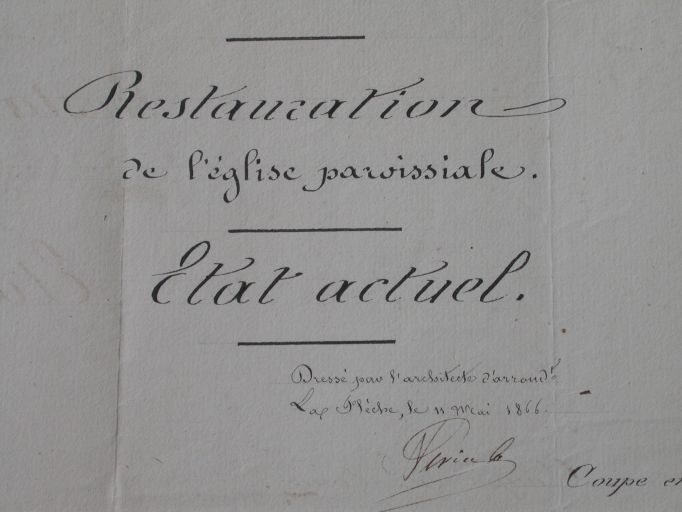 Restauration
de l'église paroissiale.
Etat actuel.
Dressé par l'architecte d'arrondt
La Flèche, le 11 Mai 1866.
Coupe en